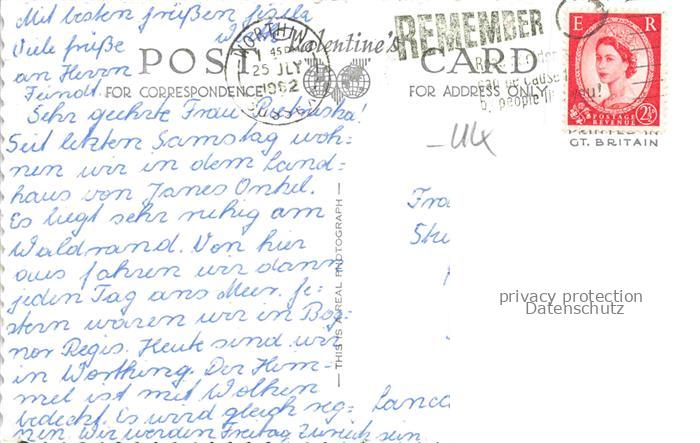 Mit besten Grüßen Gisela
Viele Grüße
an Herrn
Feindt.
Valentine's
POST CARD
FOR CORRESPONDENCE
FOR ADDRESS ONLY
WORTHING
45 PM
25 JLY
1962
SUSSEX
REMEMBER
by people like you!
E R
POSTAGE
REVENUE
2½D
PRINTED IN
GT. BRITAIN
Sehr geehrte Frau
Seit letzten Samstag woh-
nen wir in dem Land-
haus von Janes Onkel.
Es liegt sehr ruhig am
Waldrand. Von hier
aus fahren wir dann
jeden Tag ans Meer. Ge-
stern waren wir in Bog-
nor Regis. Heute sind wir
in Worthing. Der Him-
mel ist mit Wolken
bedeckt. Es wird gleich reg-
nen. Wir werden Freitag zurück sein
THIS IS A REAL PHOTOGRAPH
Fra
Stu
Lanca
privacy protection
Datenschutz